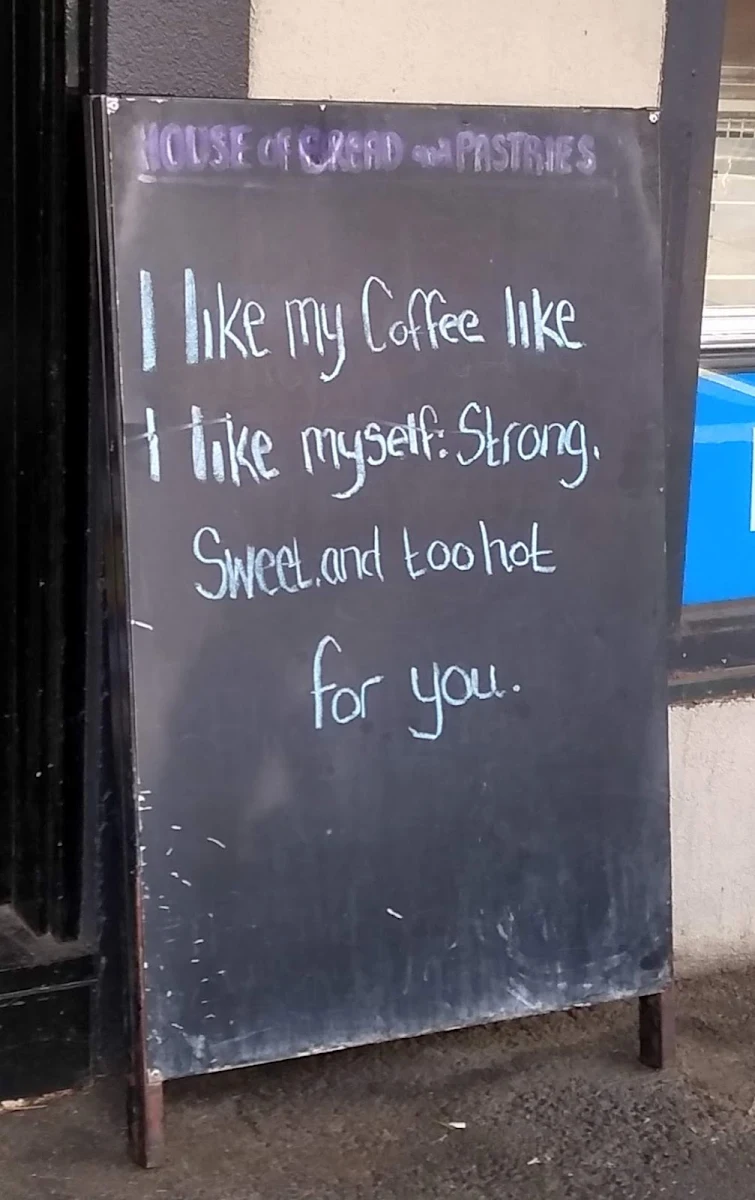 HOUSE OF BREAD and PASTRIES
I like my Coffee like
I like myself: Strong.
Sweet.and too hot
for you.